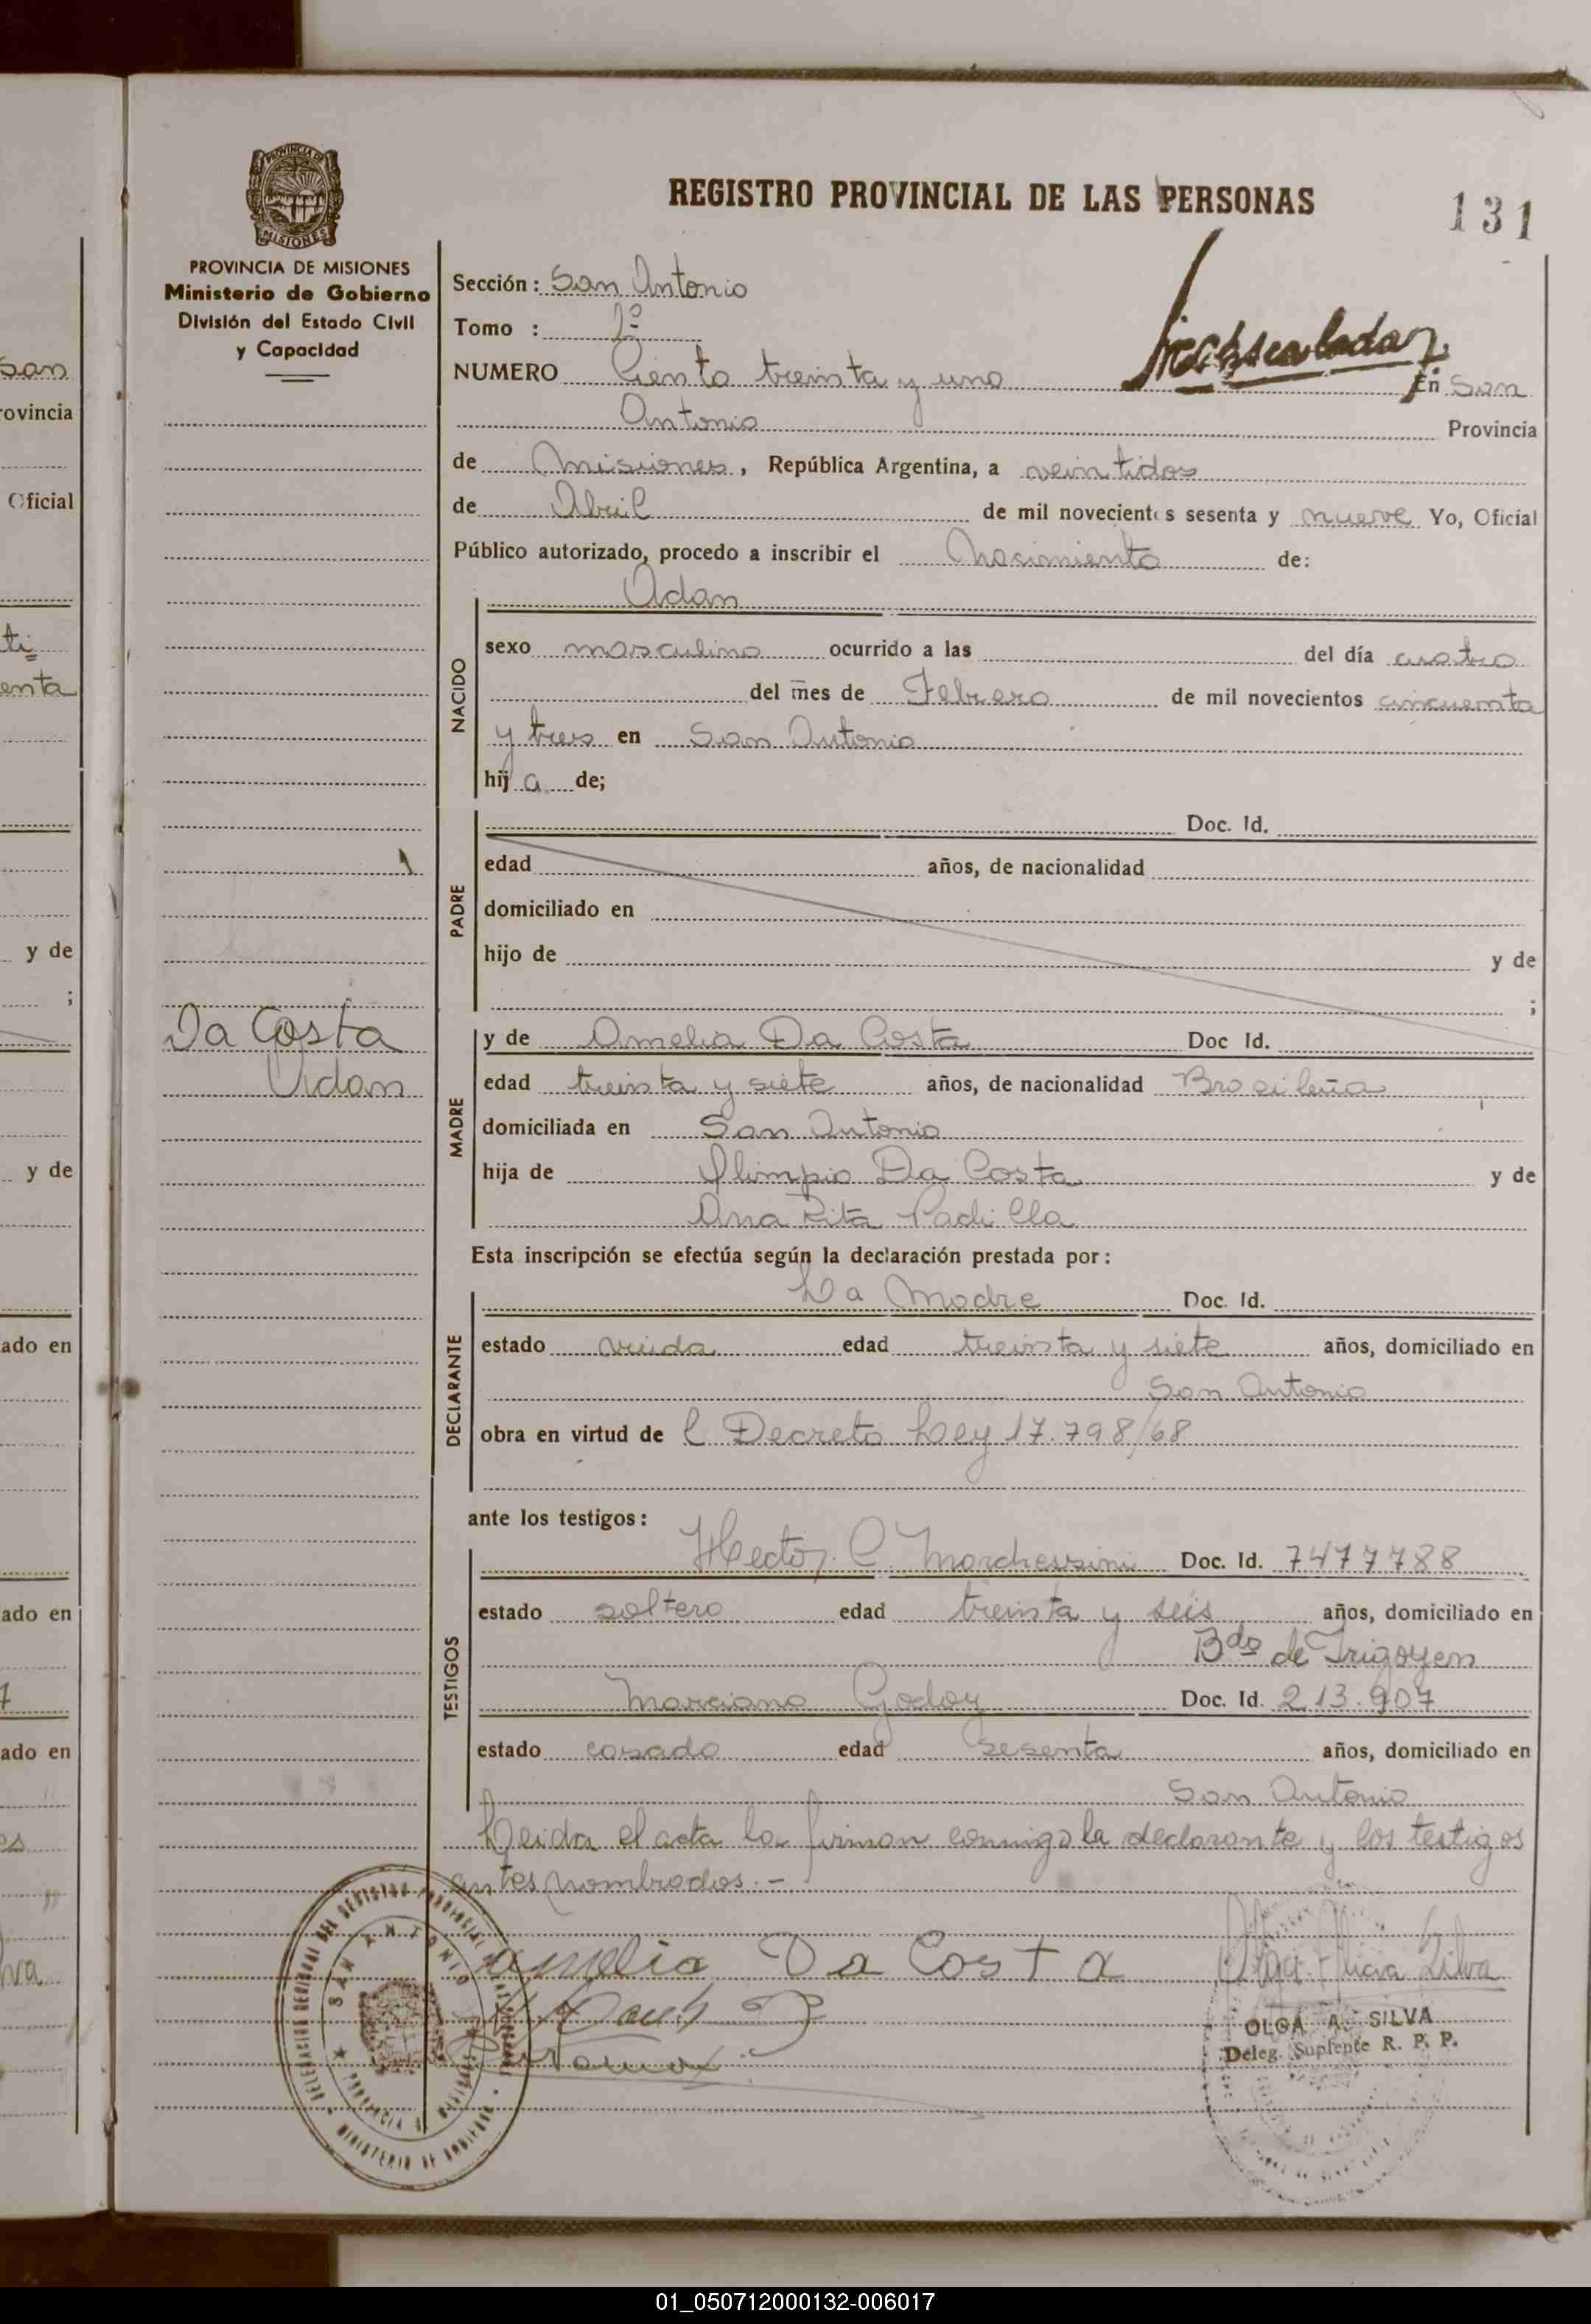 REGISTRO PROVINCIAL DE LAS PERSONAS
131
PROVINCIA DE MISIONES
Ministerio de Gobierno
División del Estado Civil
y Capacidad
Sección: San Antonio
Tomo :
NUMERO Ciento treinta y uno En San
Antonio Provincia
de Misiones, República Argentina, a veintidos
de Abril de mil novecientos sesenta y nueve Yo, Oficial
Público autorizado, procedo a inscribir el Nacimiento de:
Adan
NACIDO
sexo masculino ocurrido a las del día cuatro
del mes de Febrero de mil novecientos cincuenta
y tres en San Antonio
hij a de;
PADRE
Doc. Id.
edad años, de nacionalidad
domiciliado en
hijo de y de
;
Da Costa
Adan
MADRE
y de Amelia Da Costa Doc Id.
edad treinta y siete años, de nacionalidad Brasileña
domiciliada en San Antonio
hija de Olimpio Da Costa y de
Ana Rita Padilla
Esta inscripción se efectúa según la declaración prestada por:
DECLARANTE
La Madre Doc. Id.
estado viuda edad treinta y siete años, domiciliado en
San Antonio
obra en virtud de l Decreto Ley 17.798/68
ante los testigos:
TESTIGOS
Hector C. Marchessini Doc. Id. 7477788
estado soltero edad treinta y seis años, domiciliado en
Bdo de Irigoyen
Marciano Godoy Doc. Id. 213.907
estado casado edad sesenta años, domiciliado en
San Antonio
Leida el acta la firman conmigo la declarante y los testigos
antes nombrados.-
amelia Da Costa
Olga Alicia Silva
OLGA A. SILVA
Deleg. Suplente R. P. P.
SAN ANTONIO
San
rovincia
Oficial
ti
enta
y de
;
y de
ado en
ado en
7
ado en
es
lva
01_050712000132-006017